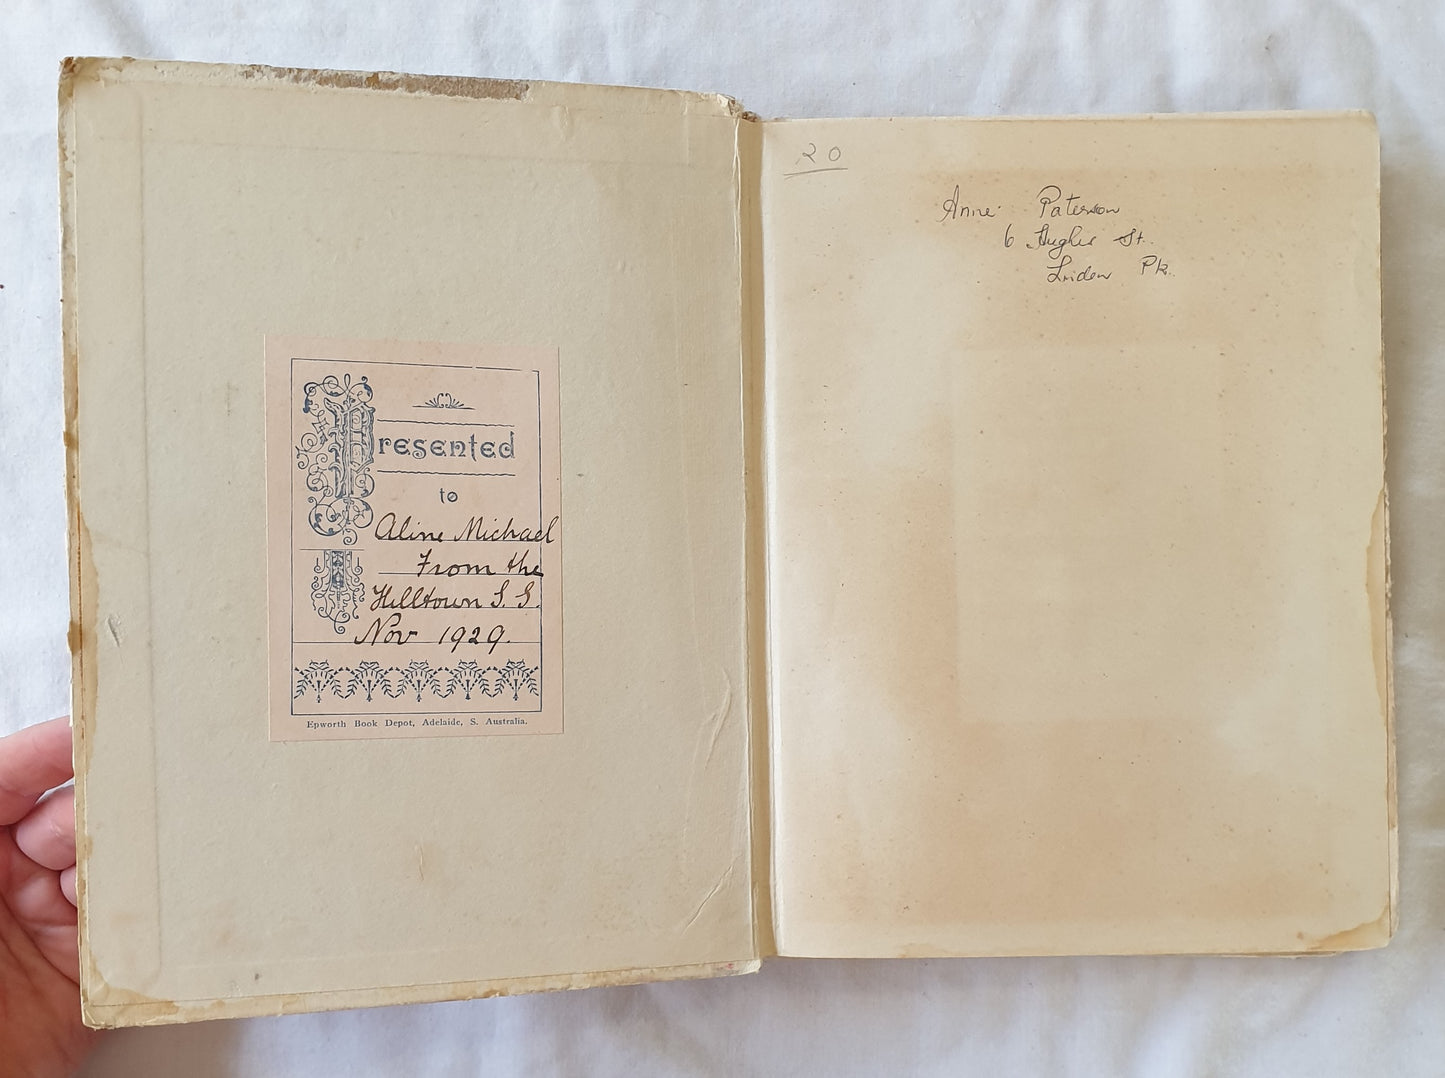 Presented
to
Aline Michael
From the
Hilltown S. S.
Nov 1929.
Epworth Book Depot, Adelaide, S. Australia.
20
Anne Paterson
6 Hughes St.
Linden Pk.